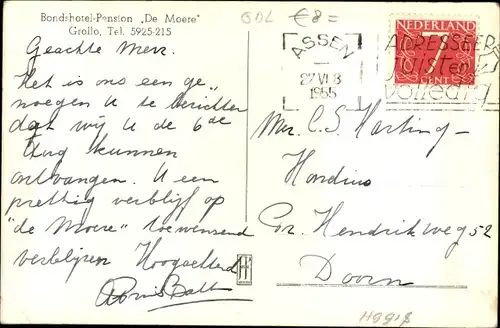 Bondshotel-Pension „De Moere"
Grollo, Tel. 5925-215
GDL €8=
Geachte Mevr.
Het is ons een ge„
noegen U te berichten
dat wij U de 6de
Aug kunnen
ontvangen. U een
prettig verblijf op
"de Moere" toewensend
verblijven Hoogachtend
ASSEN
27 VI 8
1955
ADRESSEER
JUIST en
volledig
NEDERLAND
7
CENT
Mevr. C.S. Harting-
Hondius
Gr. Hendrikweg 52
Doorn
H